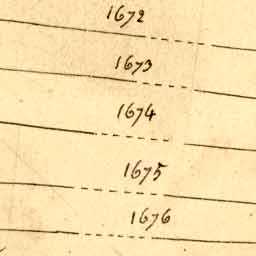 1672
1673
1674
1675
1676